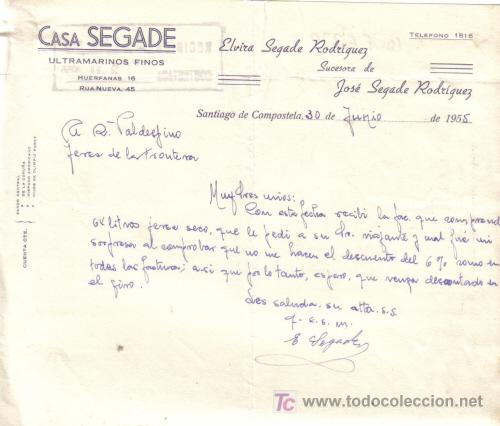 CASA SEGADE
ULTRAMARINOS FINOS
HUERFANAS 16
RUA NUEVA, 45
Elvira Segade Rodríguez
Sucesora de
José Segade Rodríguez
TELEFONO 1816
Santiago de Compostela, 30 de Junio de 1955
A. R. Valdespino
Jerez de la Frontera
Muy Sres mios:
Con esta fecha recibi la fac. que comprende
64 litros jerez seco, que le pedi a su Sr. viajante y cual fué mi
sorpresa al comprobar que no me hacen el descuento del 6% como en
todas las facturas; asi que por lo tanto, espero, que venga descontado en
el giro.
Les saluda su atta. s.s
q. s. s. m.
E Segade
CUENTA CTE.
BANCO CENTRAL
DE LA CORUÑA
HISPANO AMERICANO
TC www.todocoleccion.net